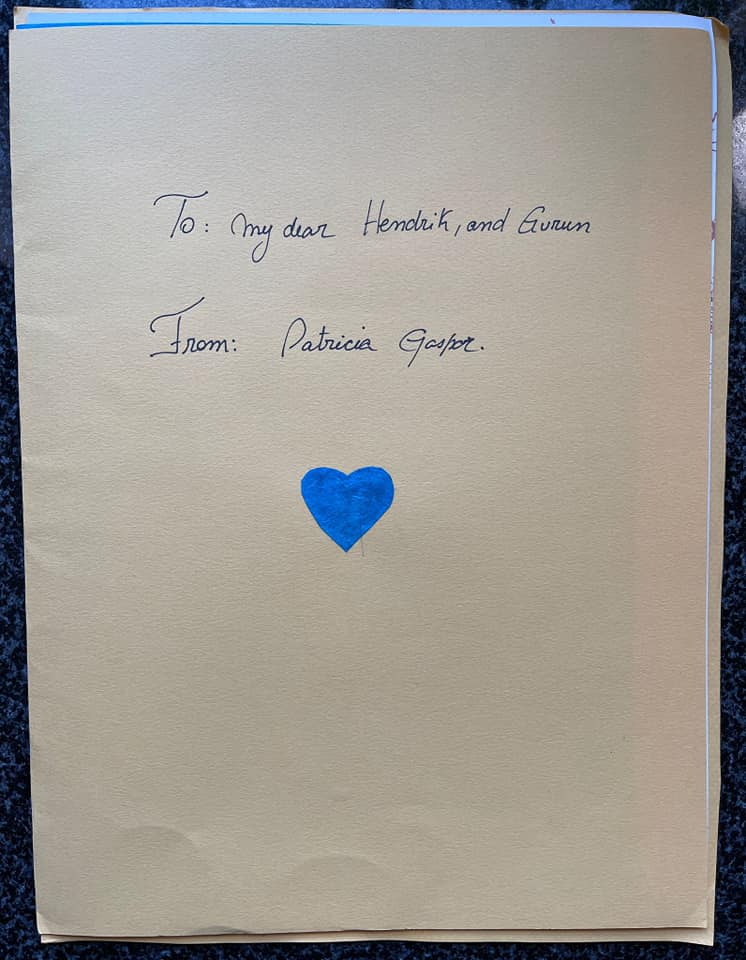 To: my dear Hendrik, and Gurun
From: Patricia Gaspar.